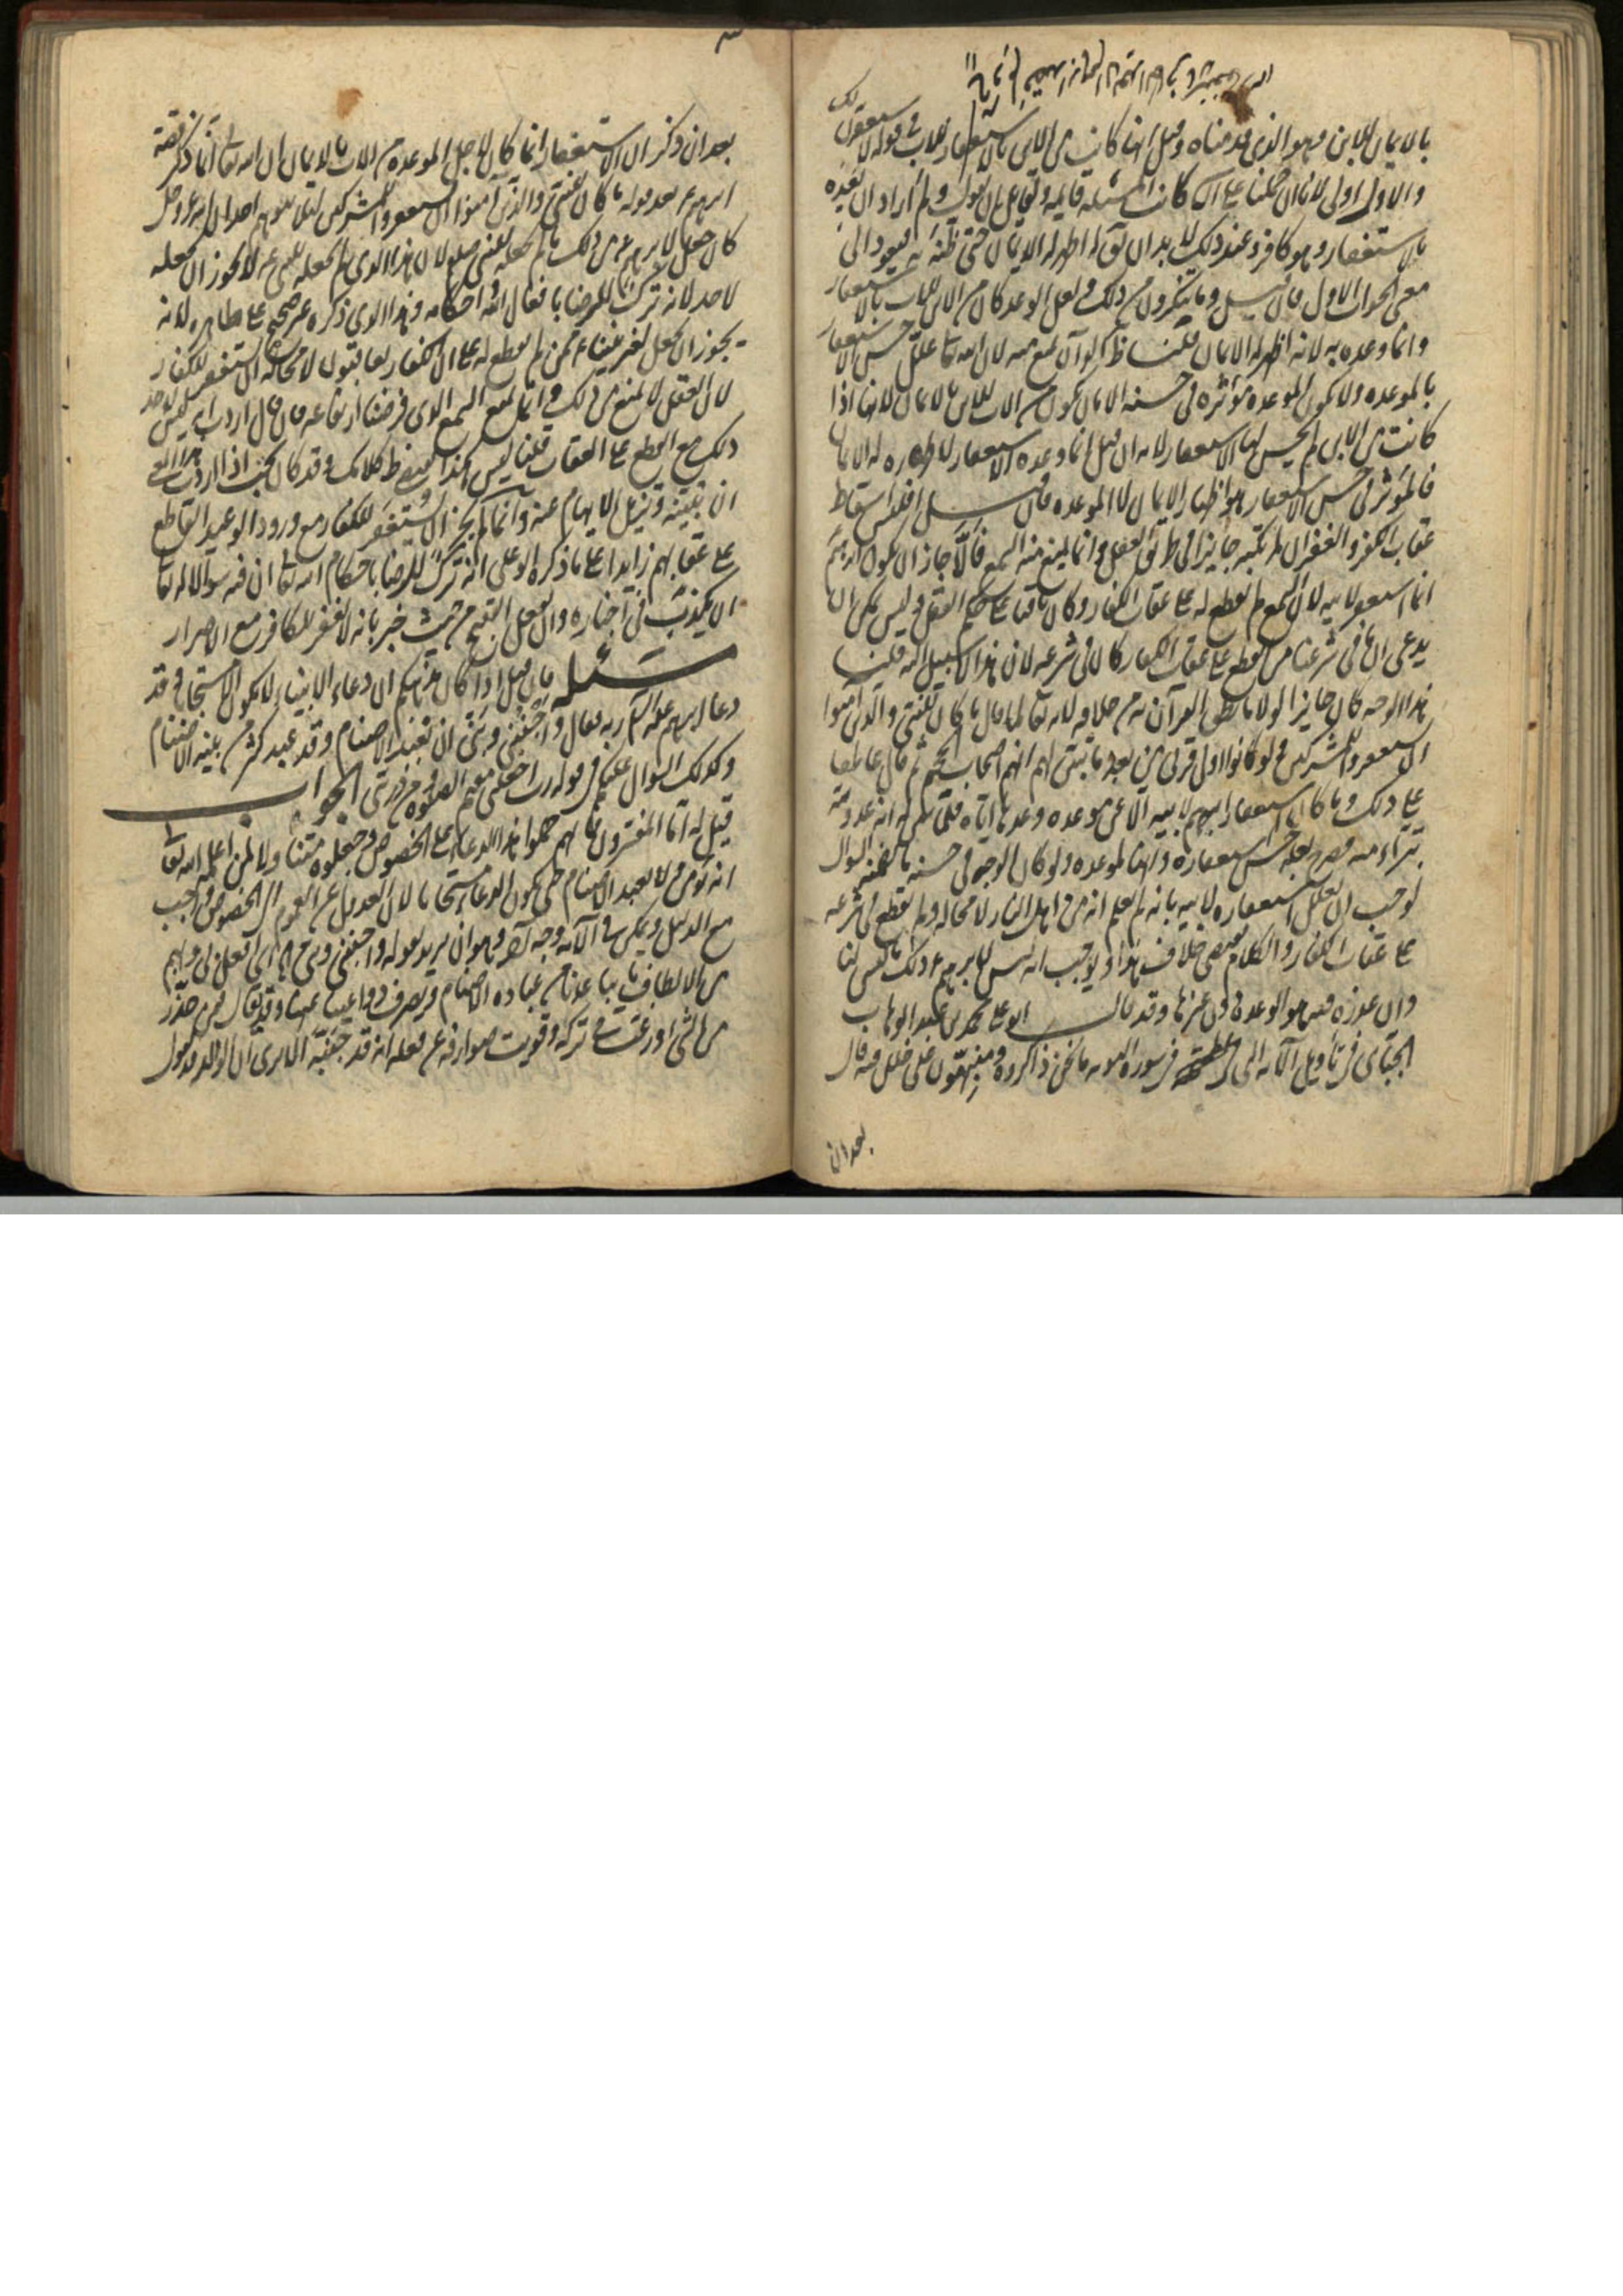 بالايمان للابن فهو الذي قدمناه وقيل انها كانت من الابن بالاستغفار للاب في قوله لاستغفرن لك
والاول اولى لانا ان حملنا على ان كانت المسئلة قايمة ولقايل ان يقول ولم اراد ان يعده
بالاستغفار وهو كافر وعند ذلك لا بد ان يقال اظهر له الايمان حتى ظنه به فيعود الى
معنى الجواب الاول فان قيل وما تنكرون من ذلك ولعل الوعد كان من الابن للاب بالاستغفار
وانما وعده به لانه اظهر له الايمان قلنا ظاهر القرآن يمنع منه لان الله تعالى علل حسن الاستغفار
بالموعده ولا تكون الموعده مؤثره في حسنه الا بان تكون من الاب للابن بالايمان لانها اذا
كانت من الابن لم يحسن لها الاستغفار لانه ان قيل انما وعده الاستغفار لاظهاره له الايمان
فالمؤثر في حسن الاستغفار هو اظهار الايمان لا الموعده فان قيل افليس اسقاط
عقاب الكفر والغفران لمرتكبه جايزا في طريق العقل وانما يمنع منه السمع فالا جاز ان يكون ابرهيم
انما استغفر لابيه لان السمع لم يقطع له على عقاب الكفار وكان باقيا على حكم العقل وليس يمكن ان
يدعى ان ما في شرعنا من القطع على عقاب الكفار كان في شرعه لان هذا لا سبيل اليه قلنا
هذا الوجه كان جايزا لولا ما نطق القرآن به من خلافه لانه تعالى لما قال ما كان للنبي والذين آمنوا
ان يستغفروا للمشركين ولو كانوا اولى قربى من بعد ما تبين لهم انهم اصحاب الجحيم ثم قال عاطفا
على ذلك وما كان استغفار ابرهيم لابيه الا عن موعده وعدها اياه فلما تبين له انه عدو لله
تبرأ منه فصرح بعلة حسن استغفاره وانها الموعده ولو كان الوجه في حسنه ما تضمنه السوال
لوجب ان يعلل استغفاره لابيه بانه لم يعلم انه من اهل النار لا محاله ولم يقطع في شرعه
على عقاب الكفار والكلام يقتضي خلاف هذا ويوجب انه ليس لابرهيم ع ذلك ما ليس لنا
وان عذره فيه هو الموعده دون غيرها وقد قال ابو علي محمد بن عبد الوهاب
الجبائي في تأويل الآية التي في سورة التوبه ما نحن ذاكروه ومنبهون على خلل فيه قال
بعد ان
بعد ان ذكر ان الاستغفار انما كان لاجل الموعده من الاب بالايمان ان الله تعالى انما ذكر قصة
ابرهيم ع بعد قوله ما كان للنبي والذين آمنوا ان يستغفروا للمشركين لئلا يتوهم احد ان الله عز وجل
كان جعل لابرهيم ع من ذلك ما لم يجعله للنبي صلعم لان هذا الذي لم يجعله للنبي ع لا يجوز ان يجعله
لاحد لانه ترك للرضا بافعال الله واحكامه وهذا الذي ذكره غير صحيح على ظاهره لانه
يجوز ان يجعل لغير نبينا ع ممن لم يقطع له على ان الكفار يعاقبون لا محاله ان يستغفر للكفار
لان العقل لا يمنع من ذلك وانما يمنع السمع الذي فرضنا ارتفاعه فان قال اردت انه ليس لاحد
ذلك مع القطع على العقاب قلنا ليس هكذا يقتضي ظ كلامك وقد كان يجب اذا اردت هذا المعنى
ان تبينه وتزيل الايهام عنه وانما لم يجز ان يستغفر للكفار مع ورود الوعيد القاطع
على عقابهم زايدا على ما ذكره ابو علي انه ترك للرضا باحكام الله تعالى ان فيه سوالا له تعالى
ان يكذب في اخباره وان يفعل القبيح من حيث خبر بانه لا يغفر للكافر مع الاصرار
مسئلة فان قيل اذا كان مذهبكم ان دعاء الانبياء لا يكون الا مستجابا وقد
دعا ابرهيم عليه السلم ربه فقال واجنبني وبني ان نعبد الاصنام وقد عبد كثير من بنيه الاصنام
وكذلك السوال عليكم في قوله رب اجعلني مقيم الصلوة ومن ذريتي الجواب
قيل له اما المفسرون فانهم حملوا هذا الدعاء على الخصوص وجعلوه متناولا لمن اعلمه الله تعالى
انه يؤمن ولا يعبد الاصنام حتى يكون الدعاء مستجابا لان العدول عن العموم الى الخصوص واجب
مع الدليل ويمكن في الآية وجه آخر وهو ان يريد بقوله واجنبني وبني اي افعل بي وبهم
من الالطاف ما يباعدنا عن عباده الاصنام ويصرف دواعينا عنها وقد يقال فيمن حذر
من الشئ ورغب في تركه وقويت صوارفه عن فعله انه قد جنبه الا ترى ان الوالد قد يقول